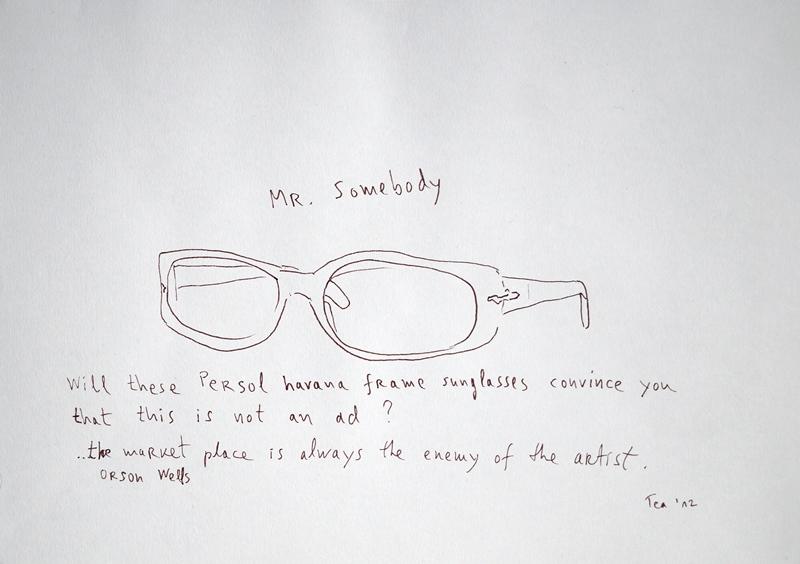 MR. Somebody
Will these Persol havana frame sunglasses convince you
that this is not an ad ?
..the market place is always the enemy of the artist.
Orson Wells
Tea '12